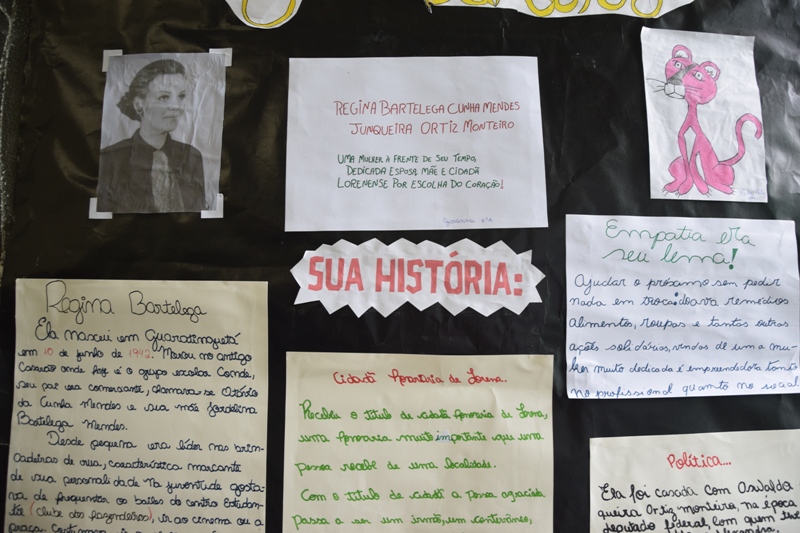 REGINA BARTELEGA CUNHA MENDES
JUNQUEIRA ORTIZ MONTEIRO
UMA MULHER À FRENTE DE SEU TEMPO,
DEDICADA ESPOSA, MÃE E CIDADÃ
LORENENSE POR ESCOLHA DO CORAÇÃO!
SUA HISTÓRIA:
Regina Bartelega
Ela nasceu em Guaratinguetá
em 10 de junho de 1942. Morou no antigo
Casarão onde hoje é o grupo escolar Conde,
seu pai era comerciante, chamava-se Otávio
da Cunha Mendes e sua mãe Jordelina
Bartelega Mendes.
Desde pequena era líder nas brin-
cadeiras de rua, característica marcante
de sua personalidade na juventude gosta-
va de frequentar os bailes do centro Estudan-
til (clube dos fazendeiros), ir ao cinema ou a
praça.
Cidadã honorária de Lorena.
Recebeu o titulo de cidadã honoraria de Lorena,
uma honraria muito importante que uma
pessoa recebe de uma localidade.
Com o titulo de cidadã a pessoa agraciada
passa a ser um irmão, um conterrâneo,
Empatia era
seu lema!
Ajudar o próximo sem pedir
nada em troca: doava remédios
alimentos, roupas e tantas outras
ações solidárias, vindas de uma mu-
lher muito dedicada e empreendedora tanto
no profissional quanto no social
Política...
Ela foi casada com Oswaldo
queira Ortiz monteiro, na época
deputado federal, com quem teve